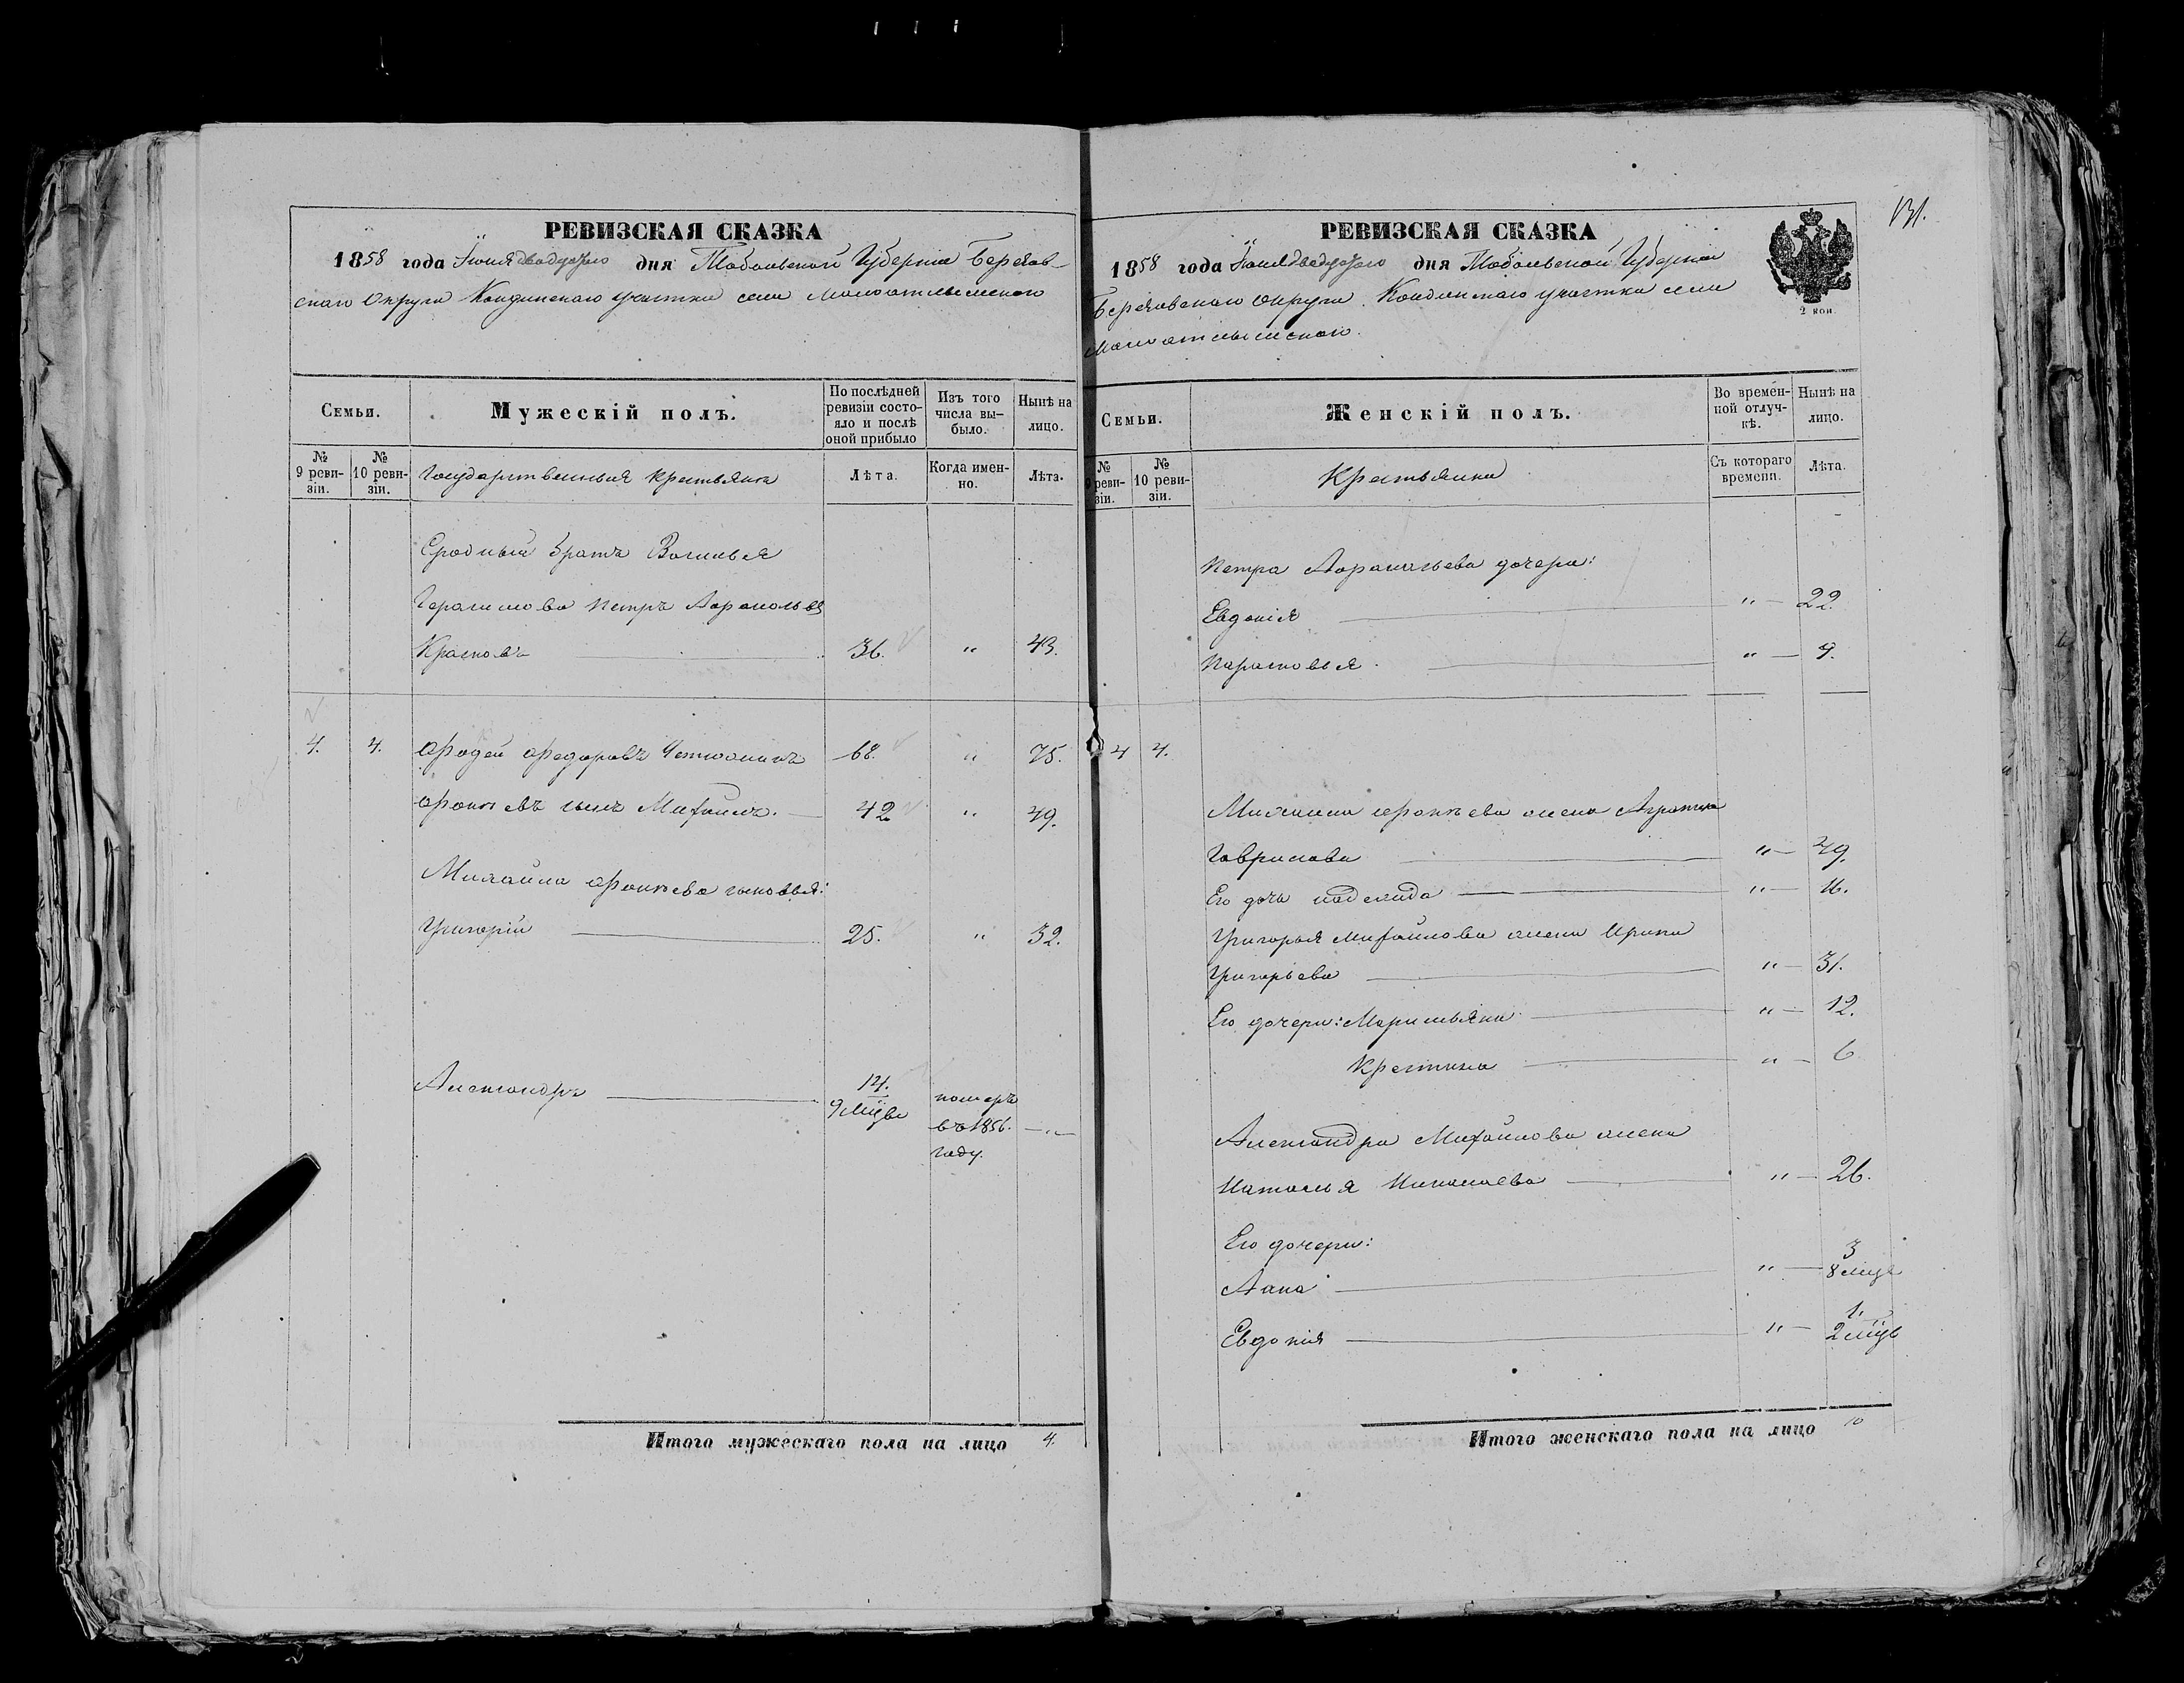 131.
РЕВИЗСКАЯ СКАЗКА
1858 года Іюня двадцатаго дня Тобольской Губерніи Березов-
скаго Округа Кондинскаго участка села Малоатлымскаго
Семьи.
Мужескій полъ.
По послѣдней ревизіи состо-
яло и послѣ
оной прибыло
Изъ того
числа вы-
было.
Нынѣ на
лицо.
№
9 реви-
зіи.
№
10 реви-
зіи.
Государственныя крестьяна
Лѣта.
Когда имен-
но.
Лѣта.
Сродный братъ Василья
Герасимова Петръ
Красновъ 36. " 43.
4. 4. Фадей Федоровъ 68. " 75.
сынъ Михаилъ. 42 " 49.
Михаила сыновья:
Григорій 25. " 32.
Александръ 14.
9 мцвъ
померъ
въ 1856.
году.
"
Итого мужескаго пола на лицо 4.
РЕВИЗСКАЯ СКАЗКА
1858 года Іюня двадцатаго дня Тобольской Губерніи
Березовскаго округа. Кондинскаго участка села
Малоатлымскаго.
2 коп.
Семьи.
Женскій полъ.
Во времен-
ной отлуч-
кѣ.
Нынѣ на
лицо.
№
9 реви-
зіи.
№
10 реви-
зіи.
Крестьянки
Съ котораго
времени.
Лѣта.
Петра дочери:
Евдокія " 22.
Парасковья " 9.
4 4.
Михаила жена
Гаврилова " 49.
Его дочь " 11.
Григорья Михайлова жена Ирина
Григорьева " 31.
Его дочери: Маремьяна " 12.
Крестина " 6
Александра Михайлова жена
Наталья Николаева " 26.
Его дочери:
Анна " 3
8 мцв
Евдокія " 1.
2 мцв
Итого женскаго пола на лицо 10